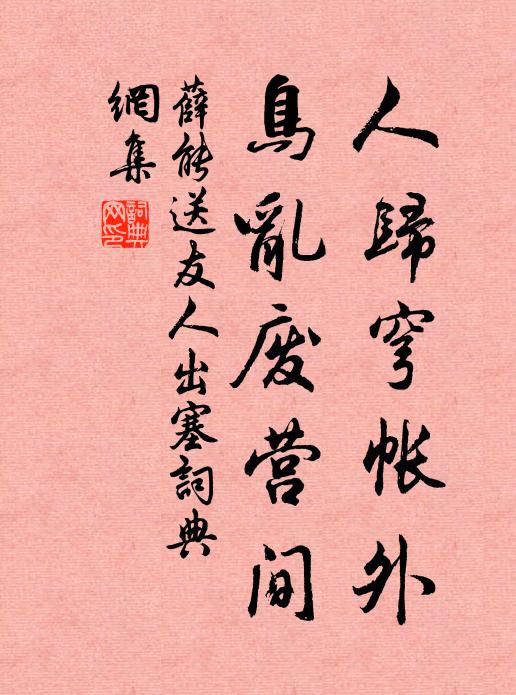 人歸穹帳外
鳥亂废营间
薛能送友人出塞詞典
網集
詞典
网印